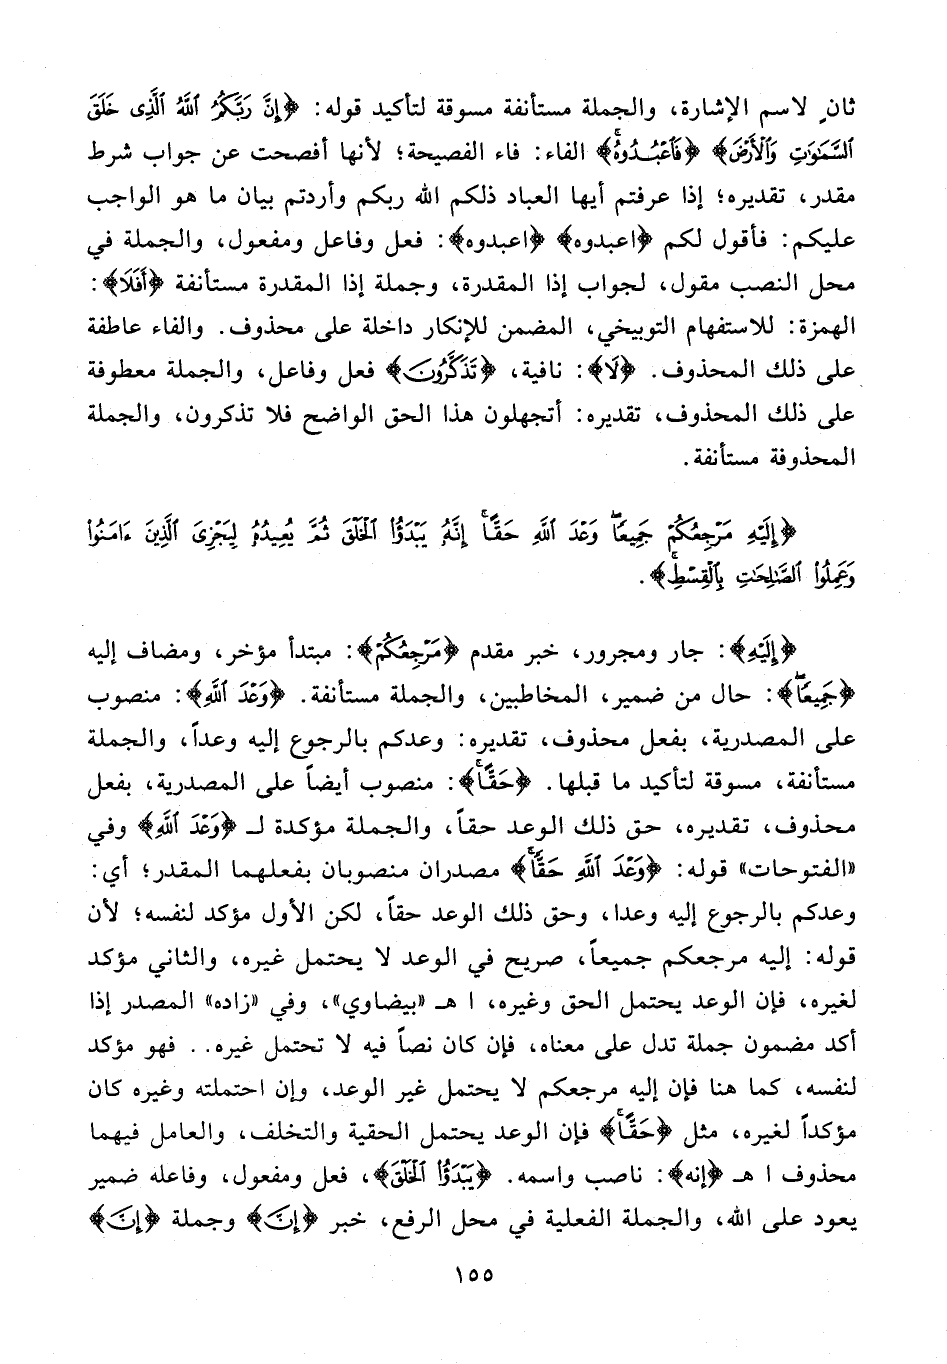 ثانٍ لاسم الإشارة، والجملة مستأنفة مسوقة لتأكيد قوله: ﴿إِنَّ رَبَّكُمُ ٱللَّهُ ٱلَّذِى خَلَقَ
ٱلسَّمَٰوَٰتِ وَٱلْأَرْضَ﴾ ﴿فَٱعْبُدُوهُ ۚ﴾ الفاء: فاء الفصيحة؛ لأنها أفصحت عن جواب شرط
مقدر، تقديره؛ إذا عرفتم أيها العباد ذلكم الله ربكم وأردتم بيان ما هو الواجب
عليكم: فأقول لكم ﴿اعبدوه﴾ ﴿اعبدوه﴾: فعل وفاعل ومفعول، والجملة في
محل النصب مقول، لجواب إذا المقدرة، وجملة إذا المقدرة مستأنفة ﴿أَفَلَا﴾:
الهمزة: للاستفهام التوبيخي، المضمن للإنكار داخلة على محذوف. والفاء عاطفة
على ذلك المحذوف. ﴿لَا﴾: نافية، ﴿تَذَكَّرُونَ﴾ فعل وفاعل، والجملة معطوفة
على ذلك المحذوف، تقديره: أتجهلون هذا الحق الواضح فلا تذكرون، والجملة
المحذوفة مستأنفة.
﴿إِلَيْهِ مَرْجِعُكُمْ جَمِيعًا ۖ وَعْدَ ٱللَّهِ حَقًّا ۚ إِنَّهُۥ يَبْدَؤُا۟ ٱلْخَلْقَ ثُمَّ يُعِيدُهُۥ لِيَجْزِىَ ٱلَّذِينَ ءَامَنُوا۟
وَعَمِلُوا۟ ٱلصَّٰلِحَٰتِ بِٱلْقِسْطِ ۚ﴾.
﴿إِلَيْهِ﴾: جار ومجرور، خبر مقدم ﴿مَرْجِعُكُمْ﴾: مبتدأ مؤخر، ومضاف إليه
﴿جَمِيعًا ۖ﴾: حال من ضمير، المخاطبين، والجملة مستأنفة. ﴿وَعْدَ ٱللَّهِ﴾: منصوب
على المصدرية، بفعل محذوف، تقديره: وعدكم بالرجوع إليه وعداً، والجملة
مستأنفة، مسوقة لتأكيد ما قبلها. ﴿حَقًّا ۚ﴾: منصوب أيضاً على المصدرية، بفعل
محذوف، تقديره، حق ذلك الوعد حقاً، والجملة مؤكدة لـ ﴿وَعْدَ ٱللَّهِ﴾ وفي
«الفتوحات» قوله: ﴿وَعْدَ ٱللَّهِ حَقًّا ۚ﴾ مصدران منصوبان بفعلهما المقدر؛ أي:
وعدكم بالرجوع إليه وعدا، وحق ذلك الوعد حقاً، لكن الأول مؤكد لنفسه؛ لأن
قوله: إليه مرجعكم جميعاً، صريح في الوعد لا يحتمل غيره، والثاني مؤكد
لغيره، فإن الوعد يحتمل الحق وغيره، ا هـ «بيضاوي»، وفي «زاده» المصدر إذا
أكد مضمون جملة تدل على معناه، فإن كان نصاً فيه لا تحتمل غيره.. فهو مؤكد
لنفسه، كما هنا فإن إليه مرجعكم لا يحتمل غير الوعد، وإن احتملته وغيره كان
مؤكداً لغيره، مثل ﴿حَقًّا ۚ﴾ فإن الوعد يحتمل الحقية والتخلف، والعامل فيهما
محذوف ا هـ ﴿إنه﴾: ناصب واسمه. ﴿يَبْدَؤُا۟ ٱلْخَلْقَ﴾، فعل ومفعول، وفاعله ضمير
يعود على الله، والجملة الفعلية في محل الرفع، خبر ﴿إِنَّ﴾ وجملة ﴿إِنَّ﴾
١٥٥